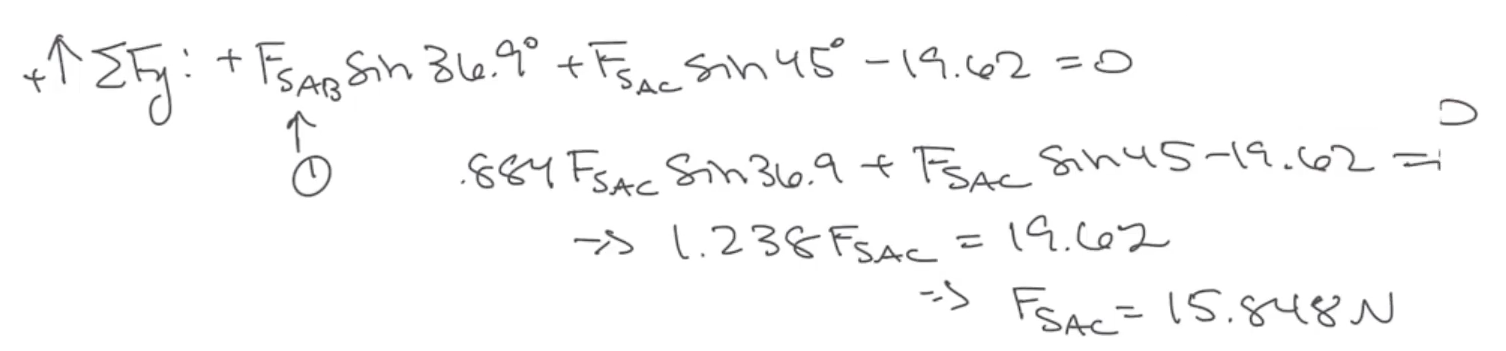 +↑ ΣFy: + F_SAB sin 36.9° + F_SAC sin 45° - 19.62 = 0
↑
① .884 F_SAC sin 36.9 + F_SAC sin 45 - 19.62 = 0
=> 1.238 F_SAC = 19.62
=> F_SAC = 15.848 N